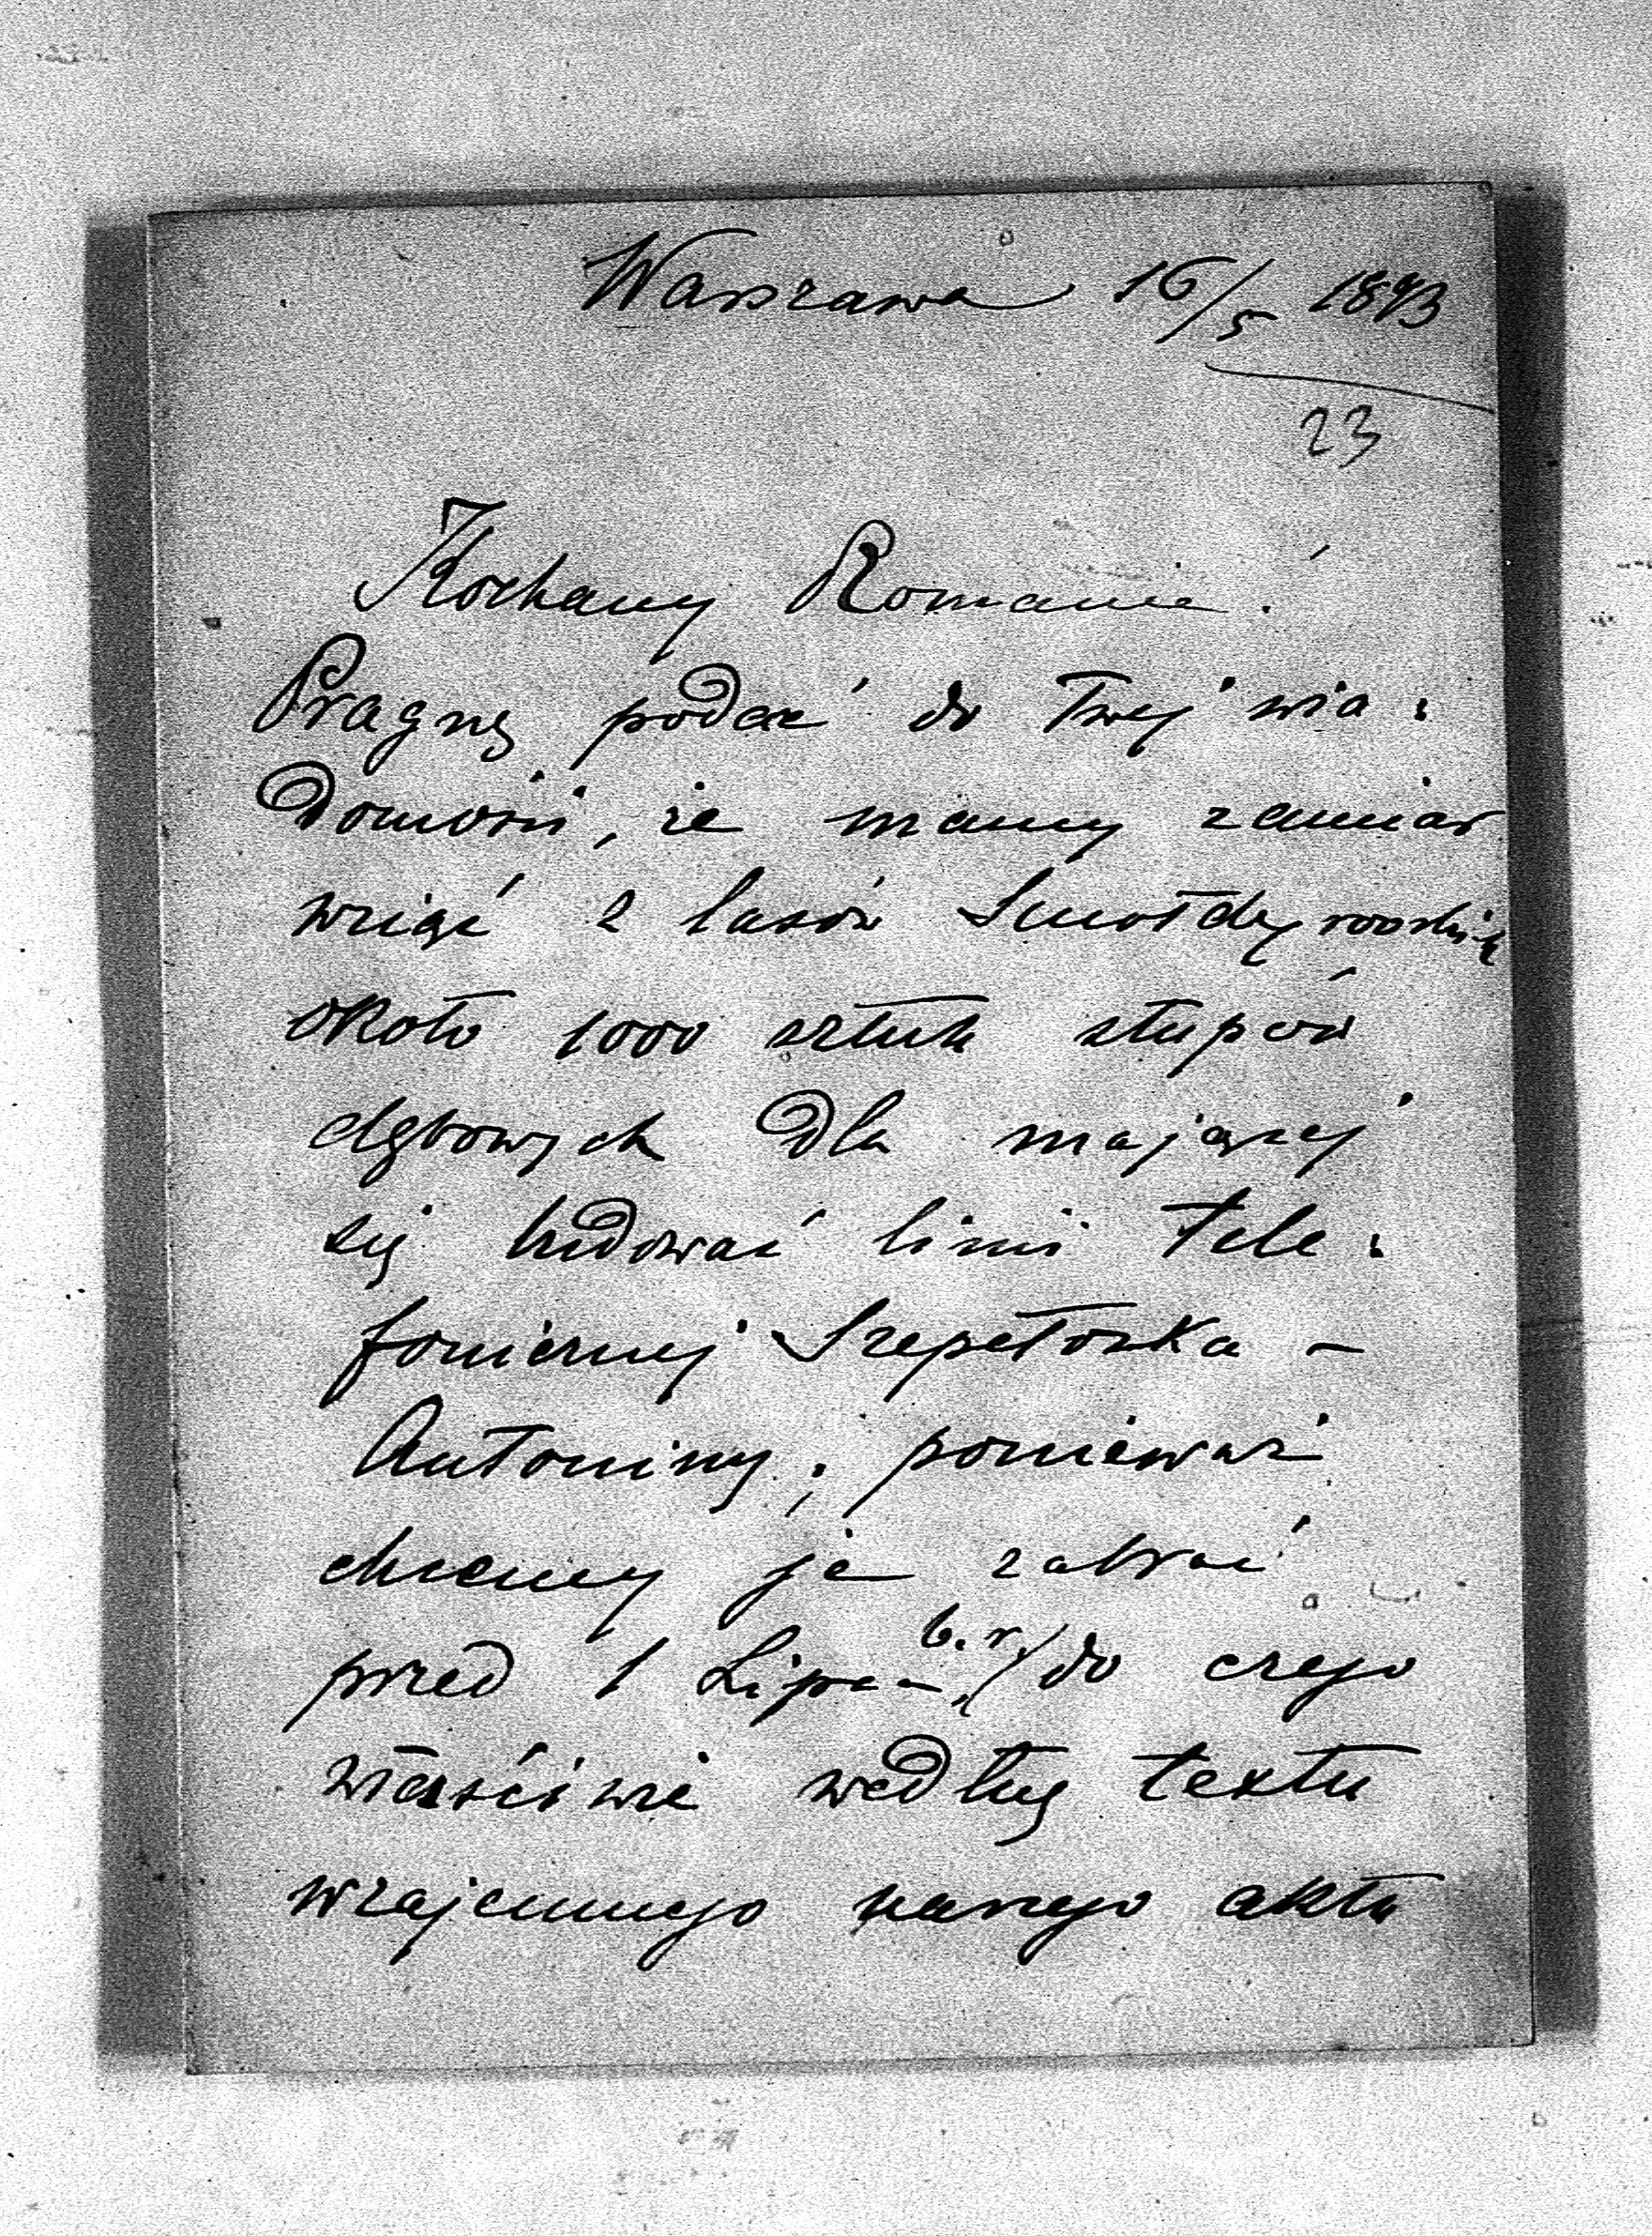 Warszawa 16/5 1893
23
Kochany Romanie!
Pragnę podać do Twej wia:
domości, że mamy zamiar
wziąć z lasów Smołdyrowskich
około 1000 sztuk słupów
dębowych dla mającej
się budować linii tele:
fonicznej Szepetowka -
Antoniny; ponieważ
chcemy je zabrać
przed 1 Lipca b.r. / do czego
właściwie według textu
wzajemnego naszego aktu